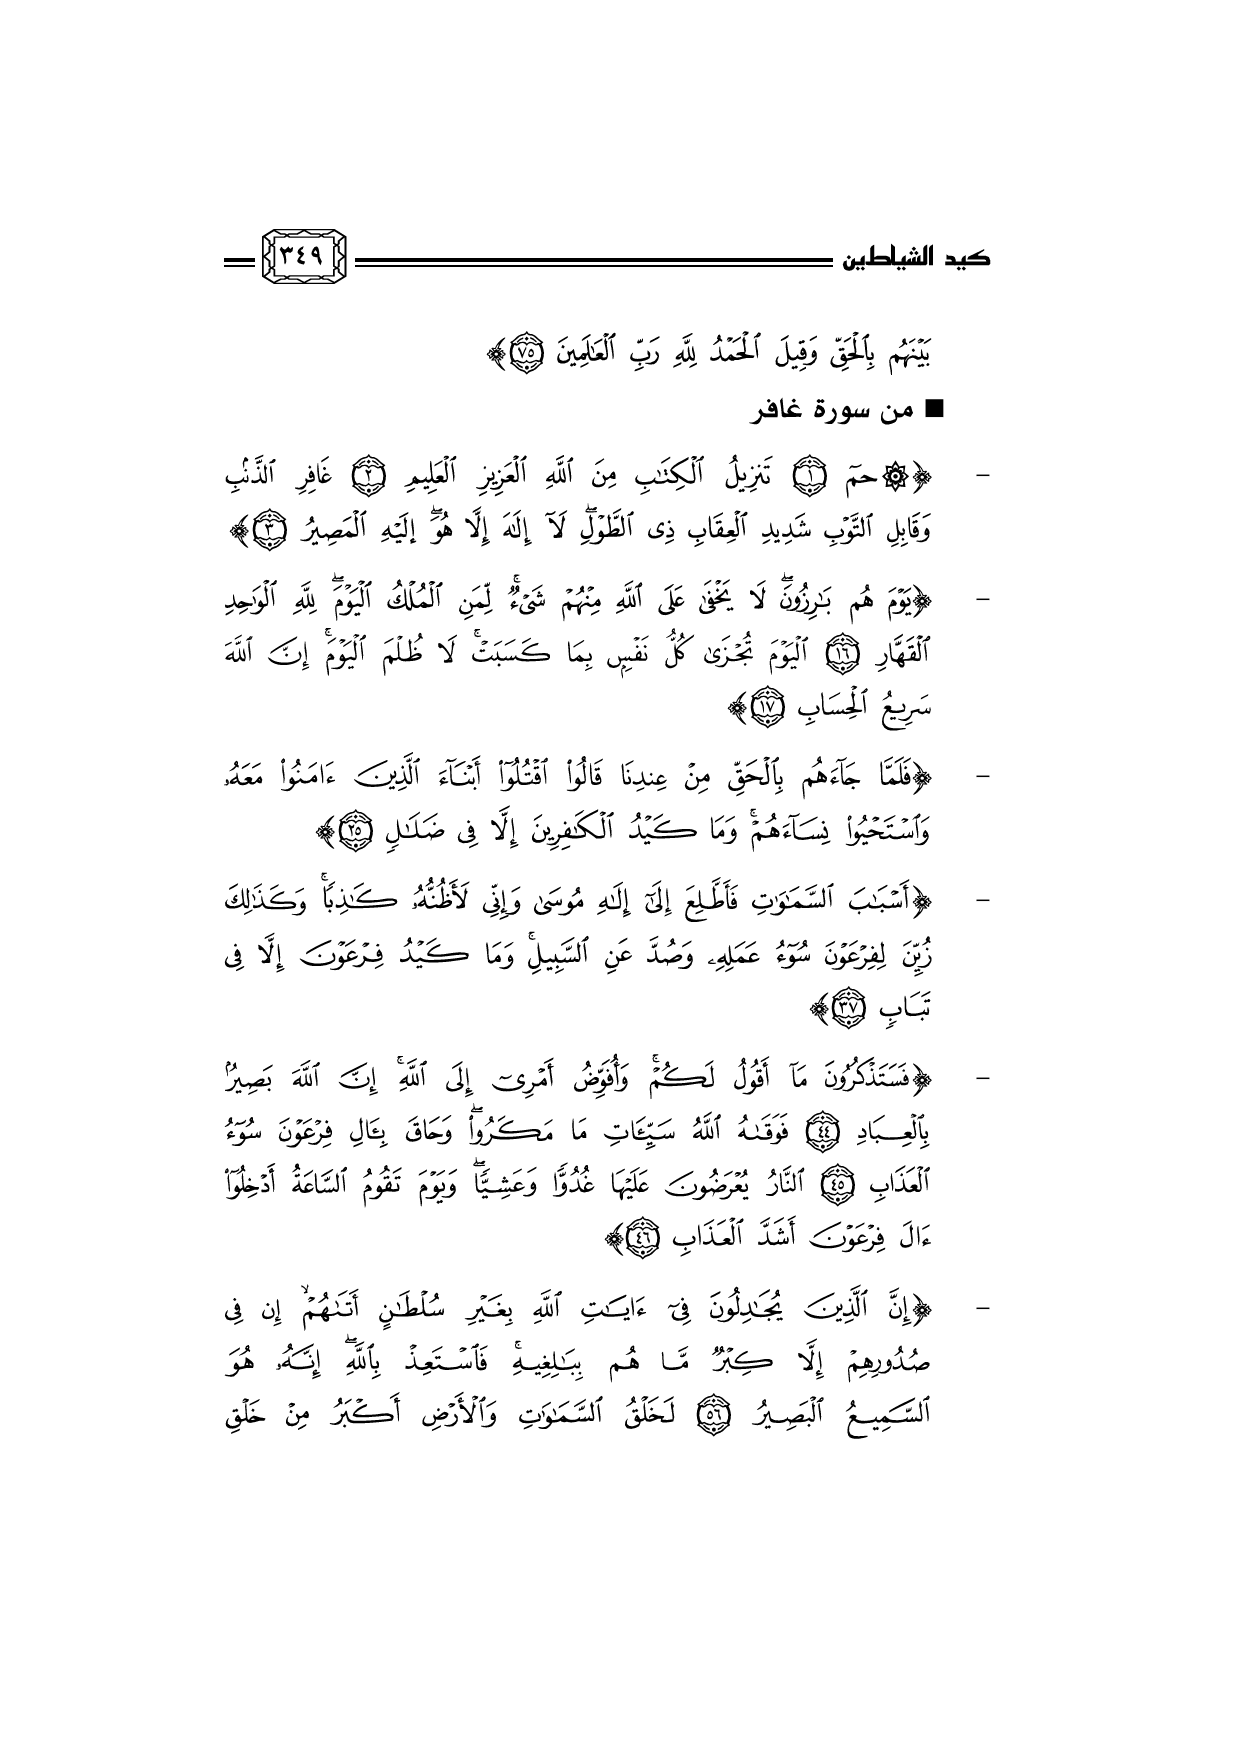 كيد الشياطين ٣٤٩
بَيْنَهُم بِٱلْحَقِّ وَقِيلَ ٱلْحَمْدُ لِلَّهِ رَبِّ ٱلْعَٰلَمِينَ ٧٥﴾
■ من سورة غافر
- ﴿۞حمٓ ١ تَنزِيلُ ٱلْكِتَٰبِ مِنَ ٱللَّهِ ٱلْعَزِيزِ ٱلْعَلِيمِ ٢ غَافِرِ ٱلذَّنۢبِ
وَقَابِلِ ٱلتَّوْبِ شَدِيدِ ٱلْعِقَابِ ذِى ٱلطَّوْلِۖ لَآ إِلَٰهَ إِلَّا هُوَۖ إِلَيْهِ ٱلْمَصِيرُ ٣﴾
- ﴿يَوْمَ هُم بَٰرِزُونَۖ لَا يَخْفَىٰ عَلَى ٱللَّهِ مِنْهُمْ شَىْءٌۚ لِّمَنِ ٱلْمُلْكُ ٱلْيَوْمَۖ لِلَّهِ ٱلْوَٰحِدِ
ٱلْقَهَّارِ ١٦ ٱلْيَوْمَ تُجْزَىٰ كُلُّ نَفْسٍۭ بِمَا كَسَبَتْۚ لَا ظُلْمَ ٱلْيَوْمَۚ إِنَّ ٱللَّهَ
سَرِيعُ ٱلْحِسَابِ ١٧﴾
- ﴿فَلَمَّا جَآءَهُم بِٱلْحَقِّ مِنْ عِندِنَا قَالُوا۟ ٱقْتُلُوٓا۟ أَبْنَآءَ ٱلَّذِينَ ءَامَنُوا۟ مَعَهُۥ
وَٱسْتَحْيُوا۟ نِسَآءَهُمْۚ وَمَا كَيْدُ ٱلْكَٰفِرِينَ إِلَّا فِى ضَلَٰلٍ ٢٥﴾
- ﴿أَسْبَٰبَ ٱلسَّمَٰوَٰتِ فَأَطَّلِعَ إِلَىٰٓ إِلَٰهِ مُوسَىٰ وَإِنِّى لَأَظُنُّهُۥ كَٰذِبًاۚ وَكَذَٰلِكَ
زُيِّنَ لِفِرْعَوْنَ سُوٓءُ عَمَلِهِۦ وَصُدَّ عَنِ ٱلسَّبِيلِۚ وَمَا كَيْدُ فِرْعَوْنَ إِلَّا فِى
تَبَابٍ ٣٧﴾
- ﴿فَسَتَذْكُرُونَ مَآ أَقُولُ لَكُمْۚ وَأُفَوِّضُ أَمْرِىٓ إِلَى ٱللَّهِۚ إِنَّ ٱللَّهَ بَصِيرٌۢ
بِٱلْعِبَادِ ٤٤ فَوَقَىٰهُ ٱللَّهُ سَيِّـَٔاتِ مَا مَكَرُوا۟ۖ وَحَاقَ بِـَٔالِ فِرْعَوْنَ سُوٓءُ
ٱلْعَذَابِ ٤٥ ٱلنَّارُ يُعْرَضُونَ عَلَيْهَا غُدُوًّا وَعَشِيًّاۖ وَيَوْمَ تَقُومُ ٱلسَّاعَةُ أَدْخِلُوٓا۟
ءَالَ فِرْعَوْنَ أَشَدَّ ٱلْعَذَابِ ٤٦﴾
- ﴿إِنَّ ٱلَّذِينَ يُجَٰدِلُونَ فِىٓ ءَايَٰتِ ٱللَّهِ بِغَيْرِ سُلْطَٰنٍ أَتَىٰهُمْۙ إِن فِى
صُدُورِهِمْ إِلَّا كِبْرٌ مَّا هُم بِبَٰلِغِيهِۚ فَٱسْتَعِذْ بِٱللَّهِۖ إِنَّهُۥ هُوَ
ٱلسَّمِيعُ ٱلْبَصِيرُ ٥٦ لَخَلْقُ ٱلسَّمَٰوَٰتِ وَٱلْأَرْضِ أَكْبَرُ مِنْ خَلْقِ